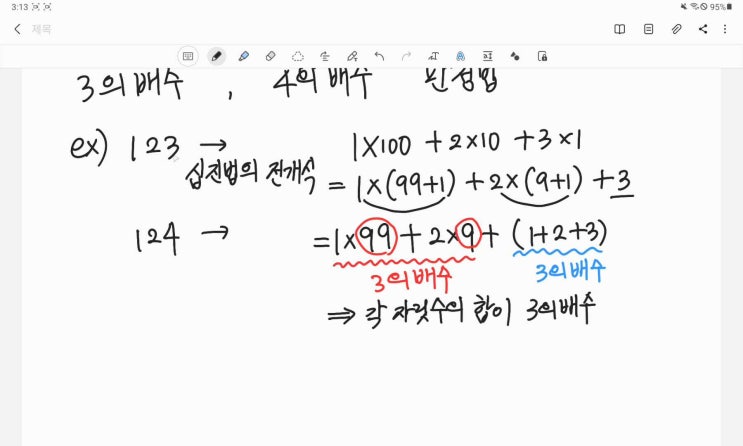 3:13
95%
제목
3의배수 , 4의 배수 판정법
ex) 123 → 1×100 + 2×10 + 3×1
십진법의 전개식 = 1×(99+1) + 2×(9+1) + 3
124 → = 1×99 + 2×9 + (1+2+3)
3의배수 3의배수
⇒ 각 자릿수의 합이 3의배수